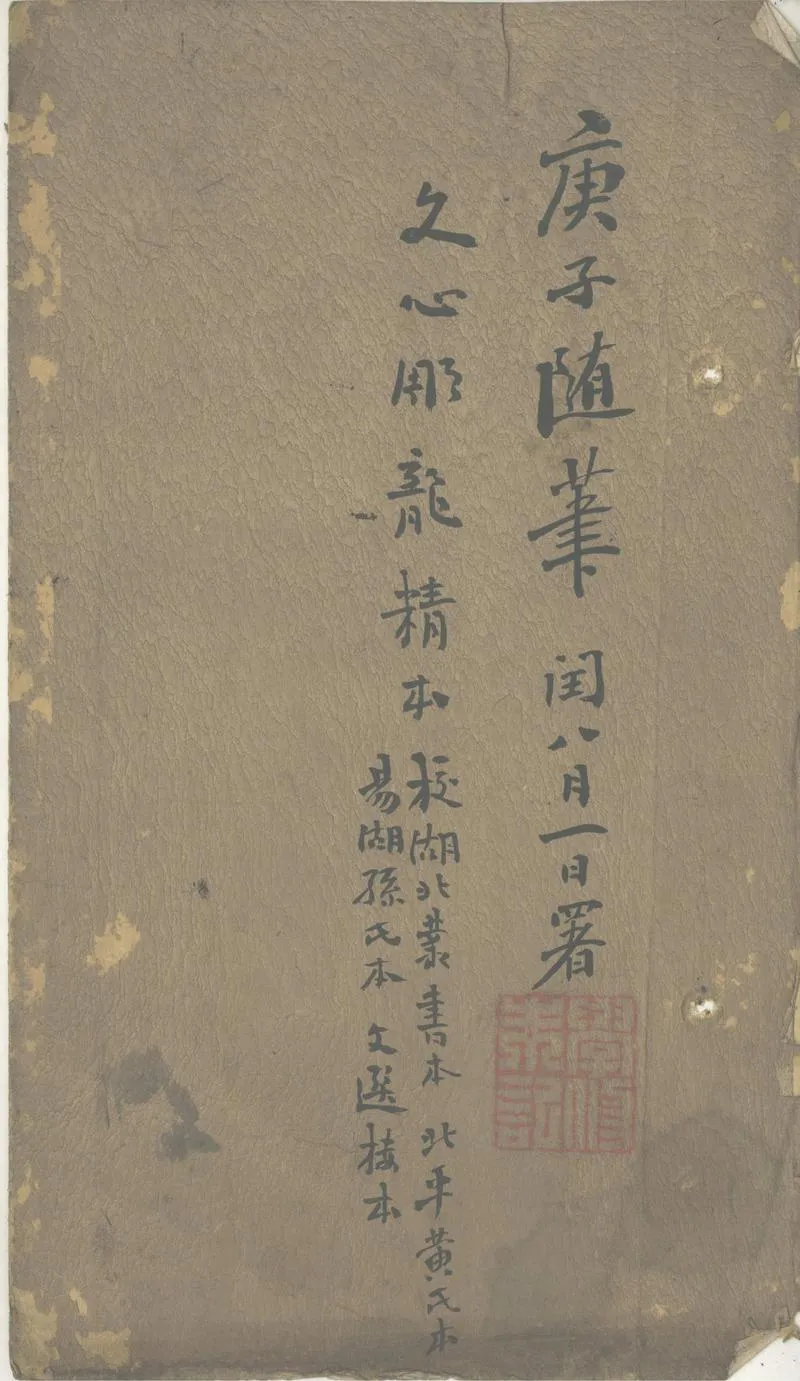 庚子随筆 闰八月一日署
文心彫龍精本
校湖北叢書本 北平黃氏本
易湖孫氏本 文選楼本